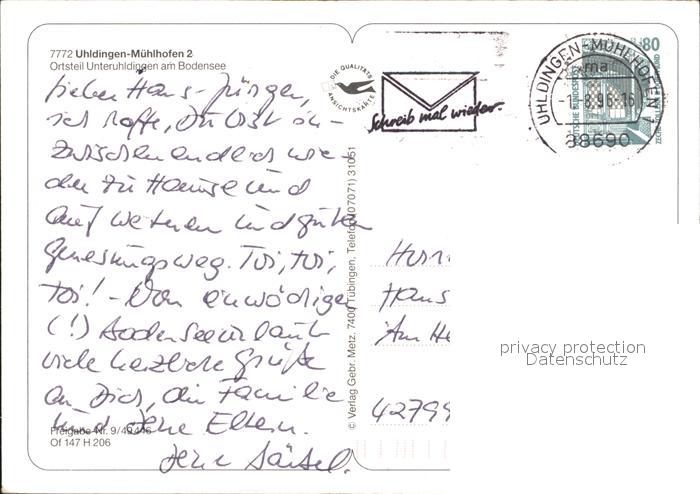 7772 Uhldingen-Mühlhofen 2
Ortsteil Unteruhldingen am Bodensee
Lieber Hans-Jürgen,
ich hoffe, Du bist in-
zwischen endlich wie-
der zu Hause und
auf weiterem und gutem
Genesungsweg. Toi, toi,
toi! - Vom einwöchigen
(!) Bodenseeurlaub
viele herzliche Grüße
an Dich, die Familie
und Deine Eltern.
Freigabe Nr. 9/49446
Of 147 H 206
Dein
DIE QUALITÄTS
ANSICHTSKARTE
© Verlag Gebr. Metz, 7400 Tübingen, Telefon (07071) 31051
Schreib mal wieder.
UHLDINGEN-MÜHLHOFEN 1
-1.8.95-16
88690
80
DEUTSCHE BUNDESPOST
Herrn
Hans
Am He
42799
privacy protection
Datenschutz